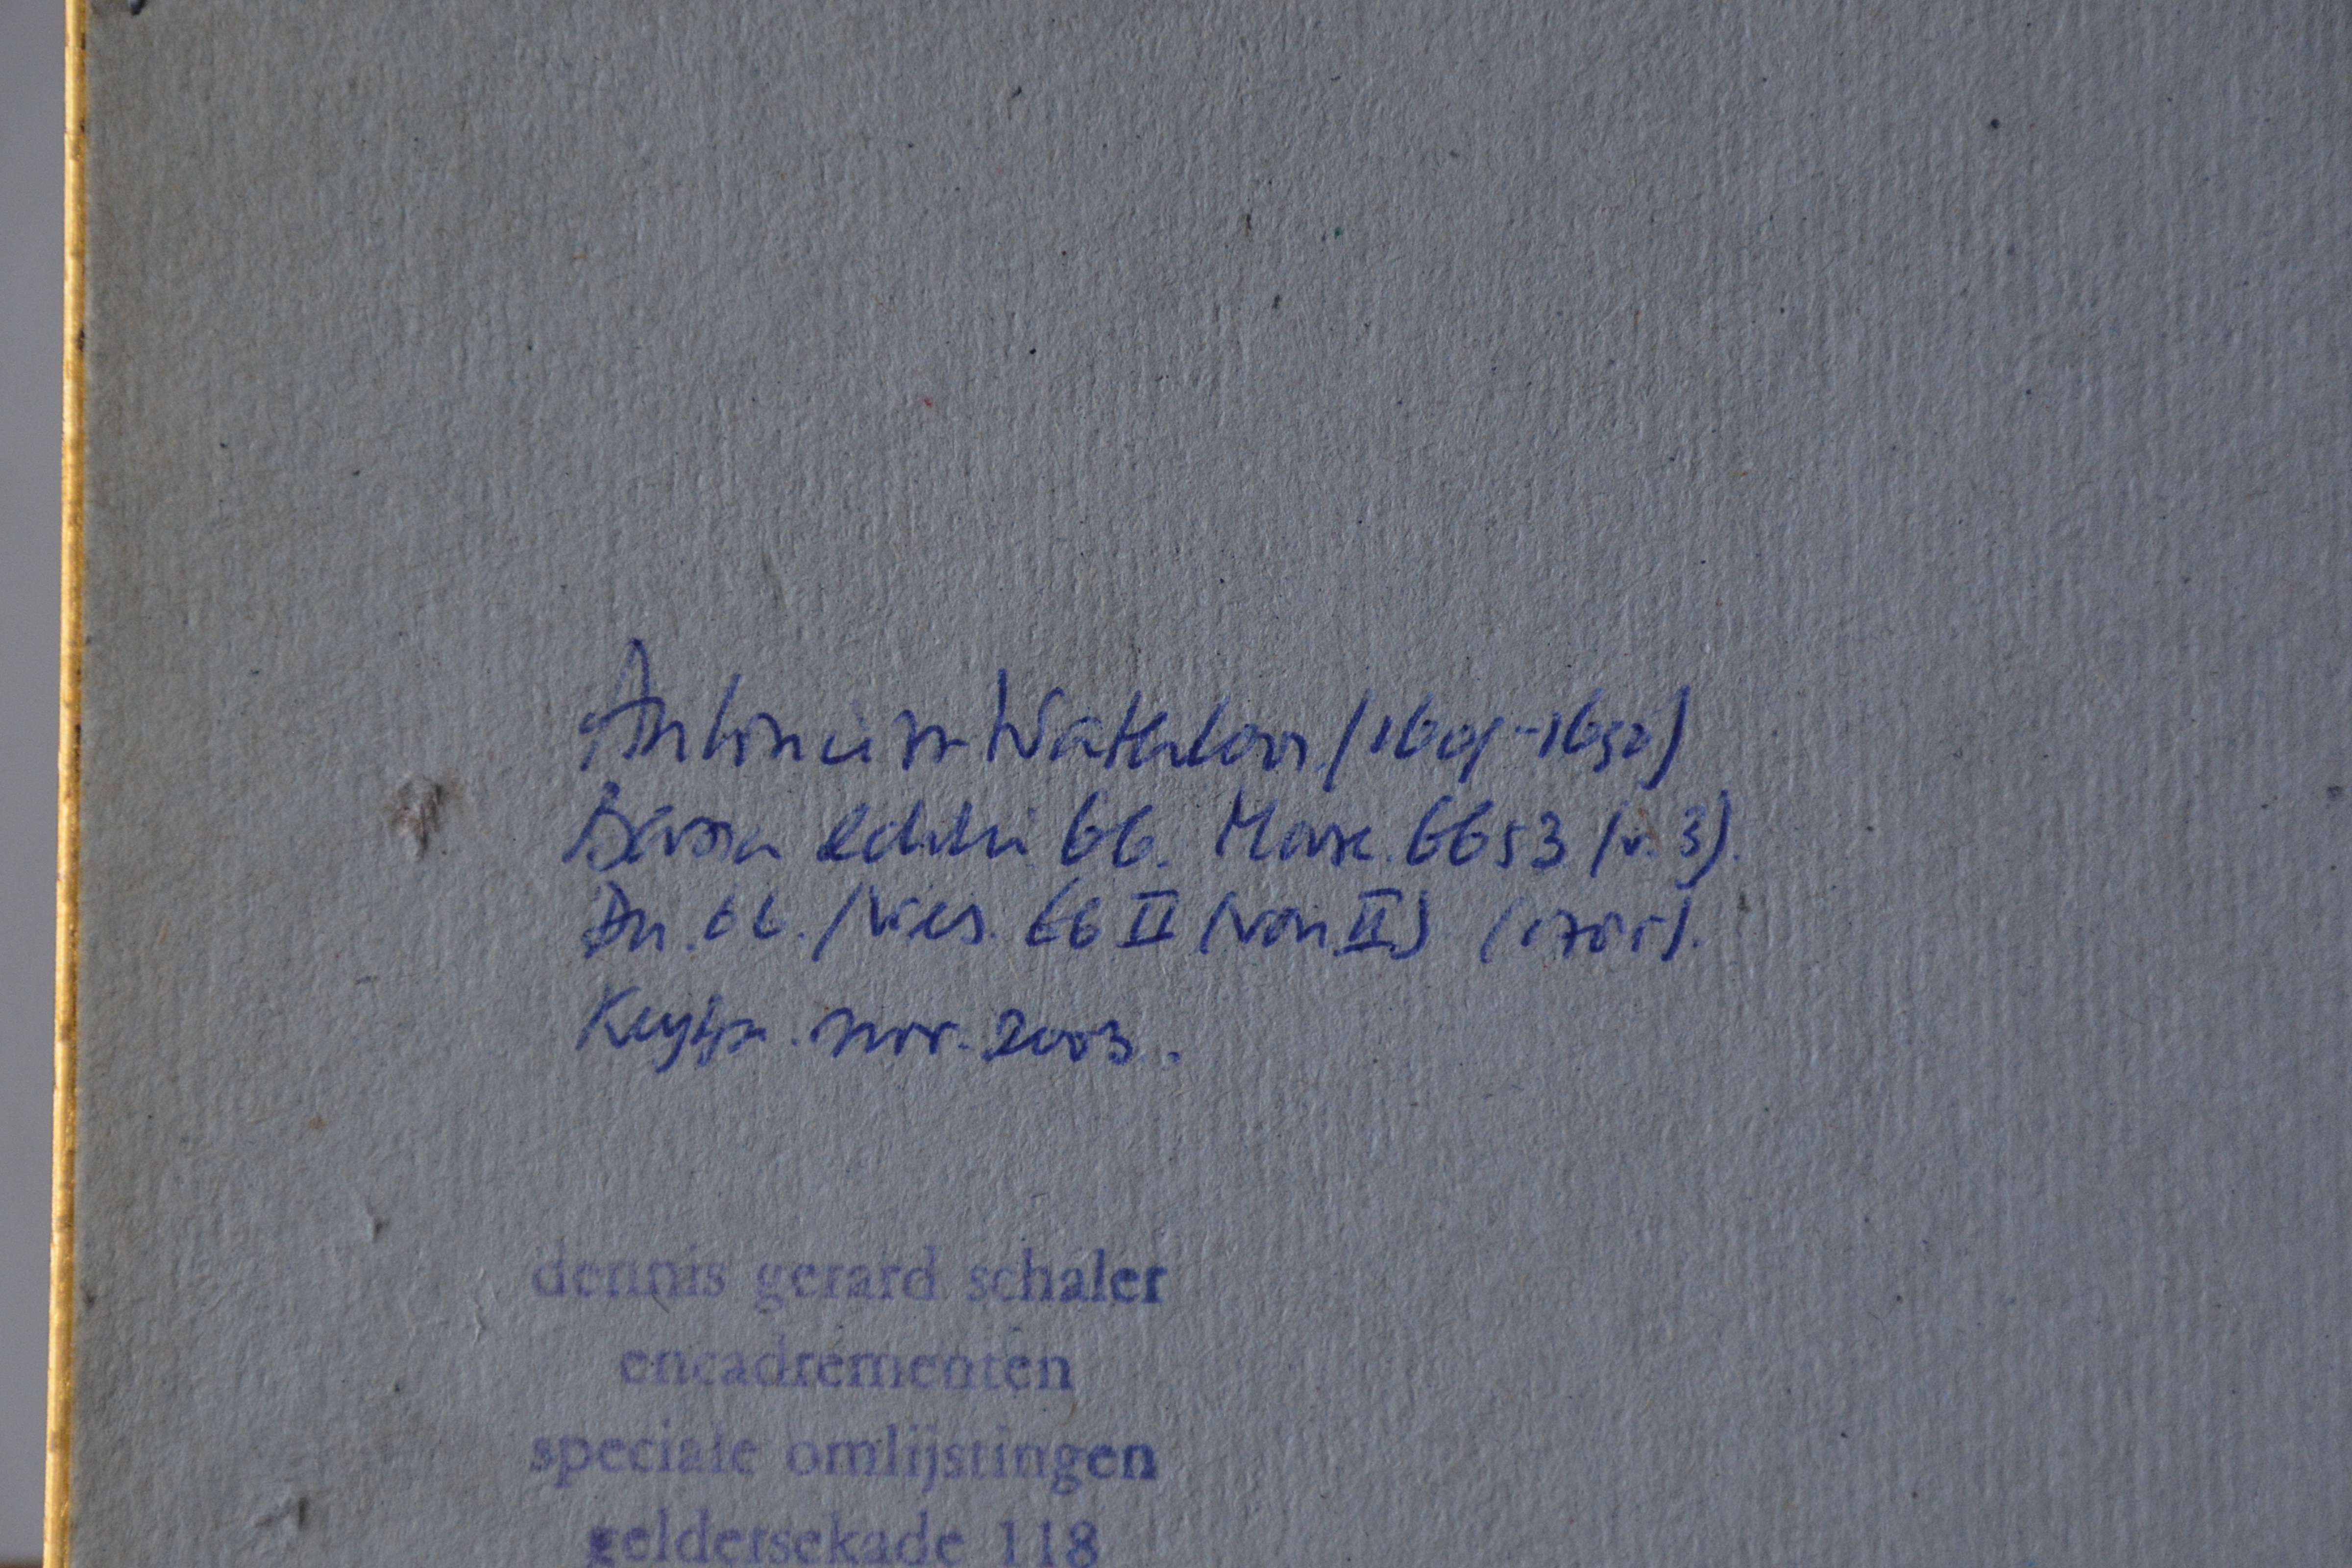 Antonie Waterloo (1609-1690)
Basan editie 66. Mose. 6653 (v. 3).
Du. 66. /Wies. 66 II (von II) (1705).
nov. 2003.
dennis gerard schaler
encadrementen
speciale omlijstingen
geldersekade 118